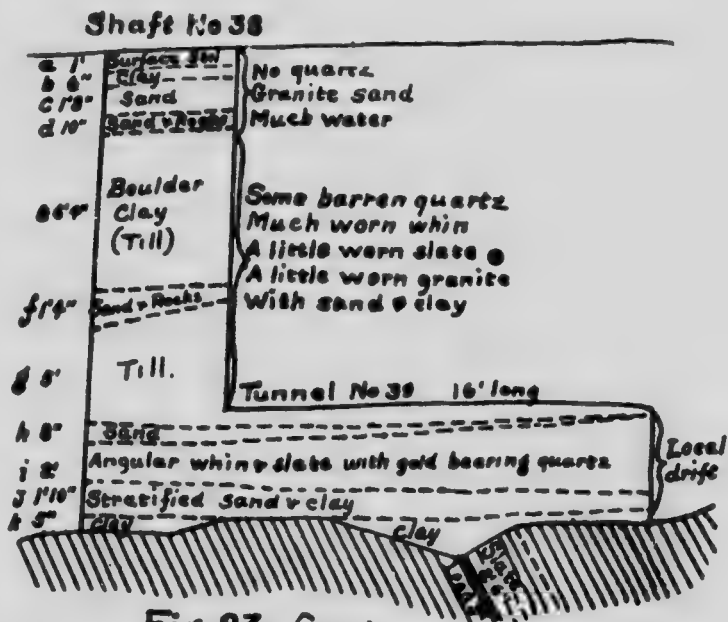 Shaft No 38
a 1' Surface Soil
b 6" Clay
c 1'8" Sand
d 10" Sand & Rocks
No quartz
Granite sand
Much water
Boulder
Clay
(Till)
Some barren quartz
Much worn whin
A little worn slate
A little worn granite
With sand & clay
f 1'4" Sand & Rocks
g 5' Till.
Tunnel No 39 16' long
h 8" Sand
i 2' Angular whin & slate with gold bearing quartz
J 1'10" Stratified sand & clay
k 5" Clay
clay
Local
drift
Slate